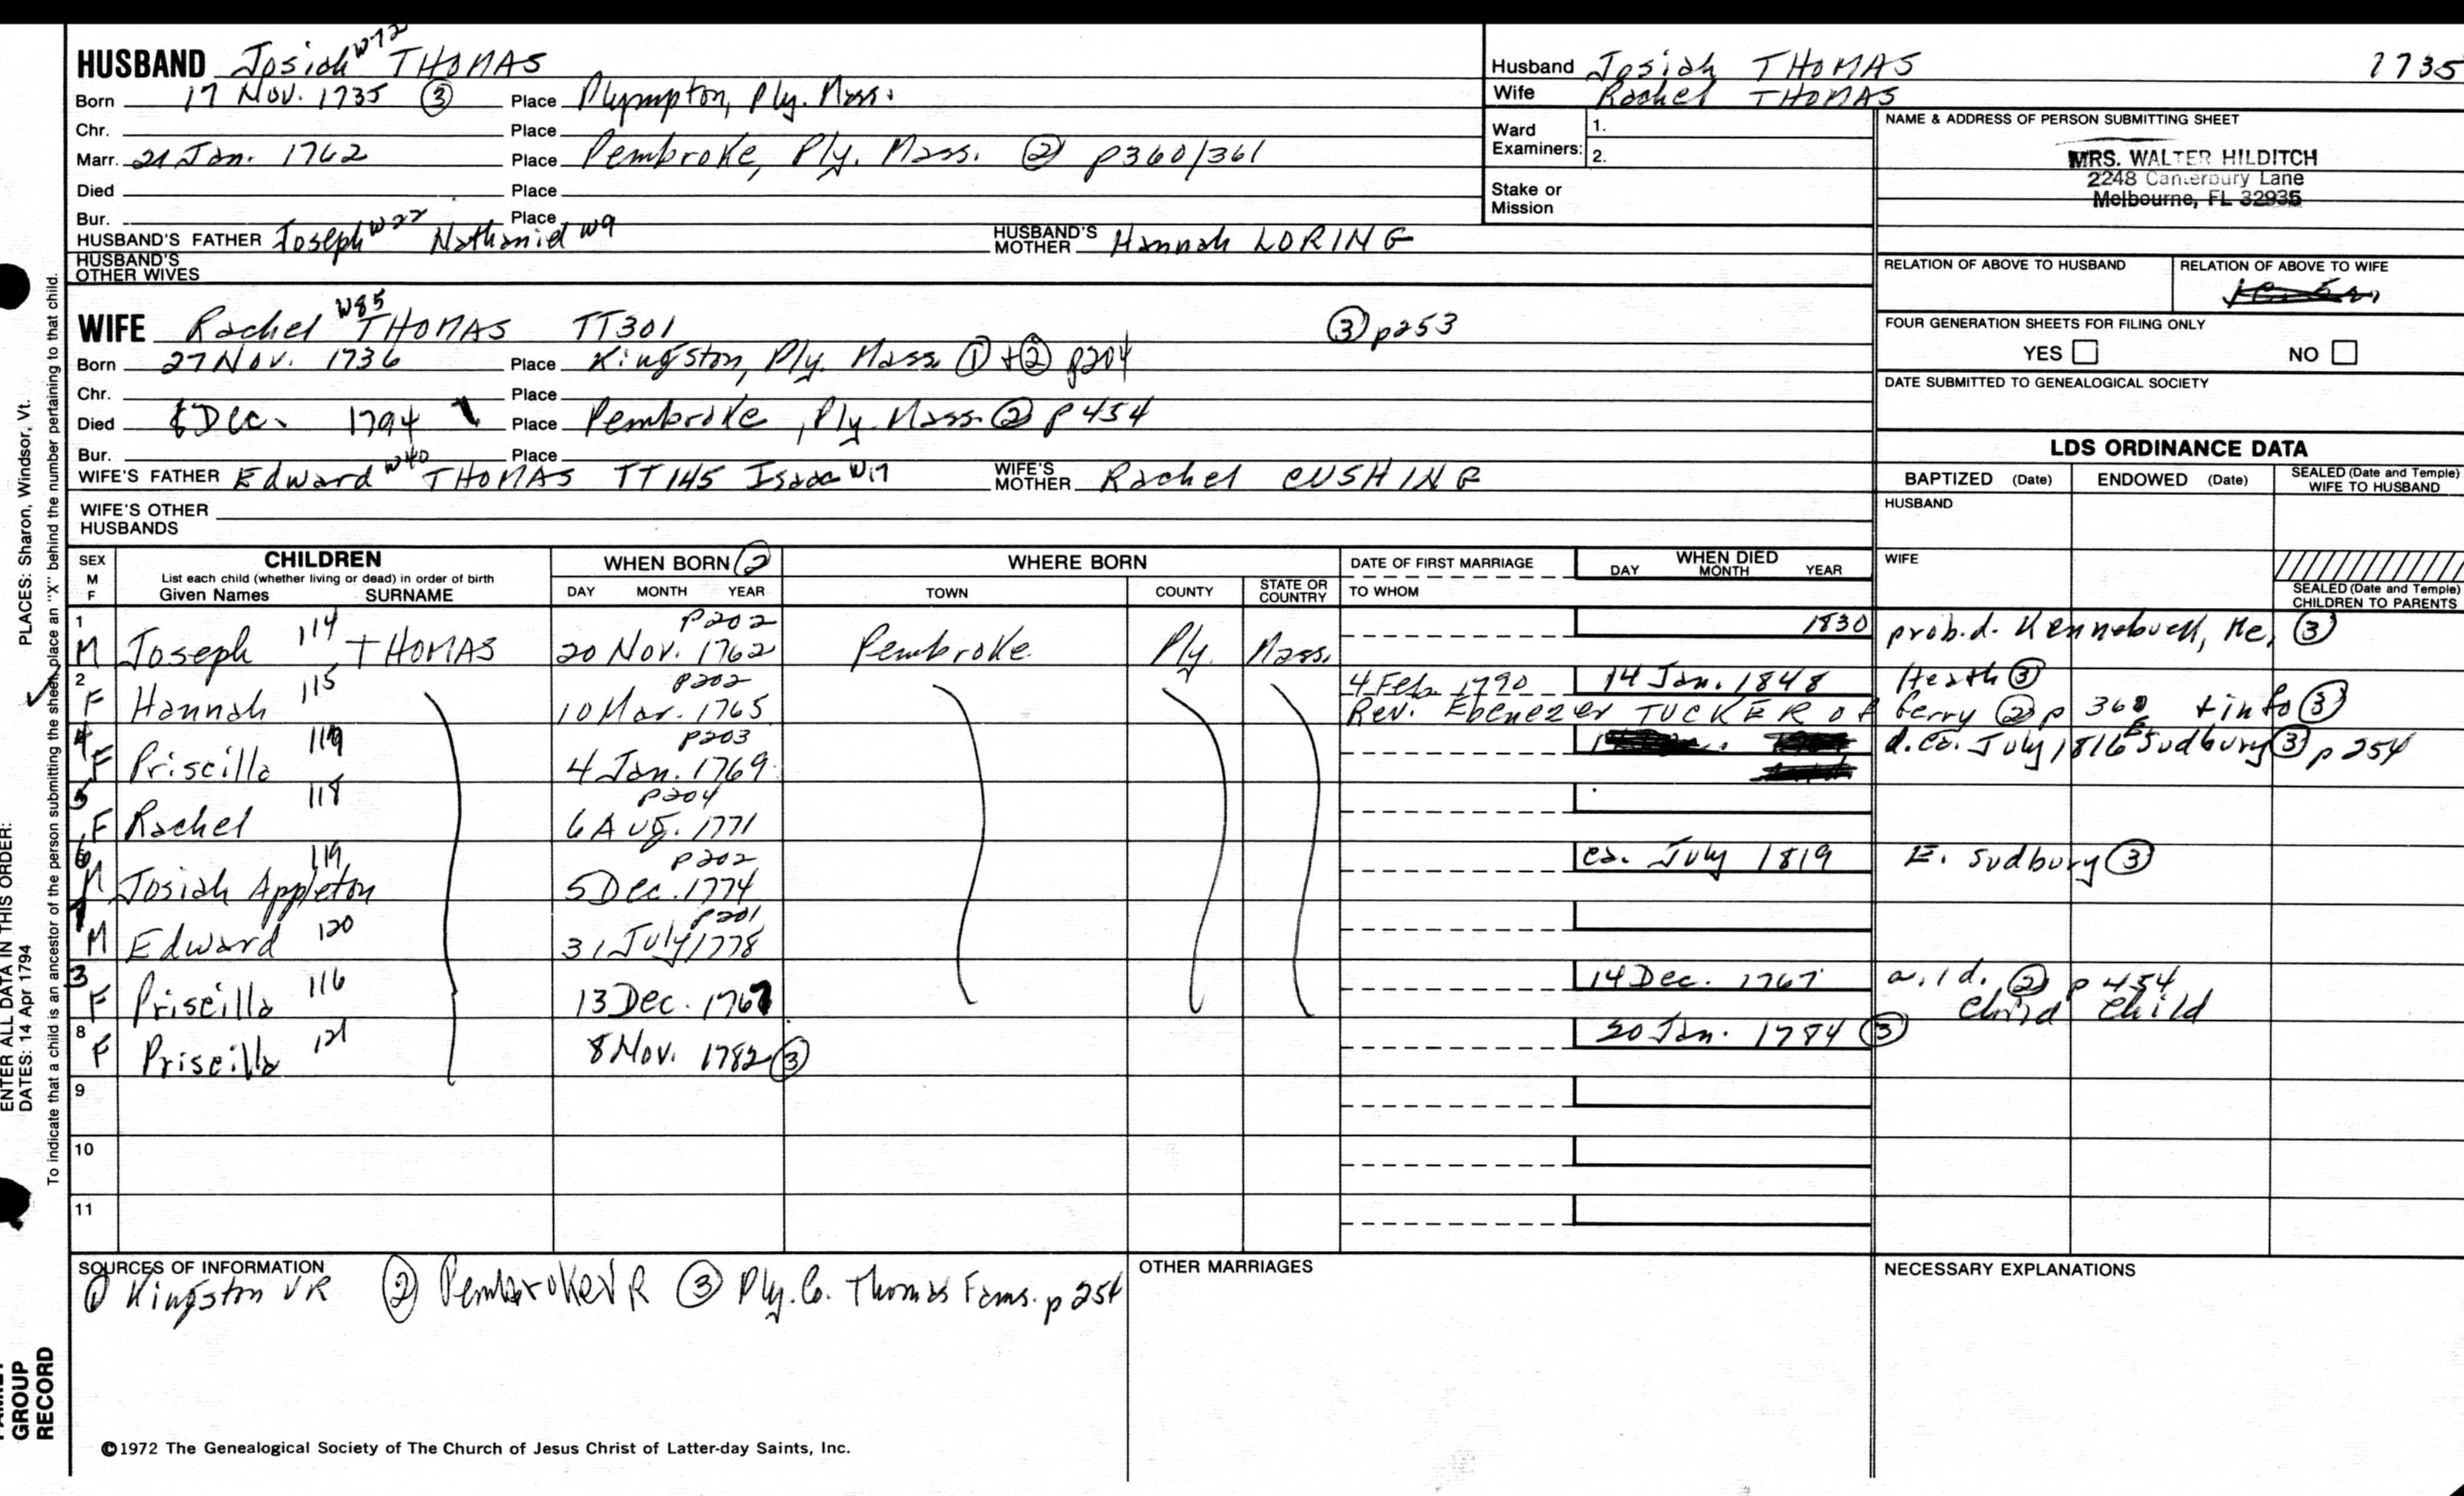 HUSBAND Josiah W72 THOMAS
Born 17 Nov. 1735 ③ Place Plympton, Ply. Mass.
Chr. Place
Marr. 21 Jan. 1762 Place Pembroke, Ply. Mass. ② p360/361
Died Place
Bur. Place
HUSBAND'S FATHER Joseph W22 Nathaniel W9 HUSBAND'S MOTHER Hannah LORING
HUSBAND'S OTHER WIVES
Husband Josiah THOMAS 1735
Wife Rachel THOMAS
Ward Examiners: 1.
2.
Stake or Mission
NAME & ADDRESS OF PERSON SUBMITTING SHEET
MRS. WALTER HILDITCH
2248 Canterbury Lane
Melbourne, FL 32935
RELATION OF ABOVE TO HUSBAND RELATION OF ABOVE TO WIFE
FOUR GENERATION SHEETS FOR FILING ONLY
YES NO
DATE SUBMITTED TO GENEALOGICAL SOCIETY
WIFE Rachel W85 THOMAS TT301 ③ p253
Born 27 Nov. 1736 Place Kingston, Ply. Mass ① + ② p204
Chr. Place
Died 8 Dec. 1794 Place Pembroke, Ply Mass. ② p454
Bur. Place
WIFE'S FATHER Edward W40 THOMAS TT145 Isaac W17 WIFE'S MOTHER Rachel CUSHING
WIFE'S OTHER HUSBANDS
LDS ORDINANCE DATA
BAPTIZED (Date) ENDOWED (Date) SEALED (Date and Temple) WIFE TO HUSBAND
HUSBAND
WIFE
SEALED (Date and Temple) CHILDREN TO PARENTS
SEX M F
CHILDREN
List each child (whether living or dead) in order of birth
Given Names SURNAME
WHEN BORN ②
DAY MONTH YEAR
WHERE BORN
TOWN COUNTY STATE OR COUNTRY
DATE OF FIRST MARRIAGE
TO WHOM
WHEN DIED
DAY MONTH YEAR
1 M Joseph 114 THOMAS p202 20 Nov. 1762 Pembroke Ply. Mass. 1830 prob. d. Kennebuck, Me. ③
2 F Hannah 115 p202 10 Mar. 1765 4 Feb. 1790 14 Jan. 1848 Heath ③
Rev. Ebenezer TUCKER of Gerry ② p 360 + info ③
4 F Priscilla p203 4 Jan. 1769 d. ca. July 1816 E Sudbury ③ p254
5 F Rachel 118 p204 6 Aug. 1771
6 M Josiah Appleton 119 p202 5 Dec. 1774 ca. July 1819 E. Sudbury ③
7 M Edward 120 p201 31 July 1778
3 F Priscilla 116 13 Dec. 1767 14 Dec. 1767 a. 1 d. ② p454
Child Child
8 F Priscilla 121 8 Nov. 1782 ③ 20 Jan. 1784 ③
9
10
11
SOURCES OF INFORMATION
① Kingston VR ② Pembroke VR ③ Ply. Co. Thomas Fams. p254
OTHER MARRIAGES
NECESSARY EXPLANATIONS
©1972 The Genealogical Society of The Church of Jesus Christ of Latter-day Saints, Inc.
ENTER ALL DATA IN THIS ORDER:
DATES: 14 Apr 1794 PLACES: Sharon, Windsor, Vt.
To indicate that a child is an ancestor of the person submitting the sheet, place an "X" behind the number pertaining to that child.
GROUP
RECORD